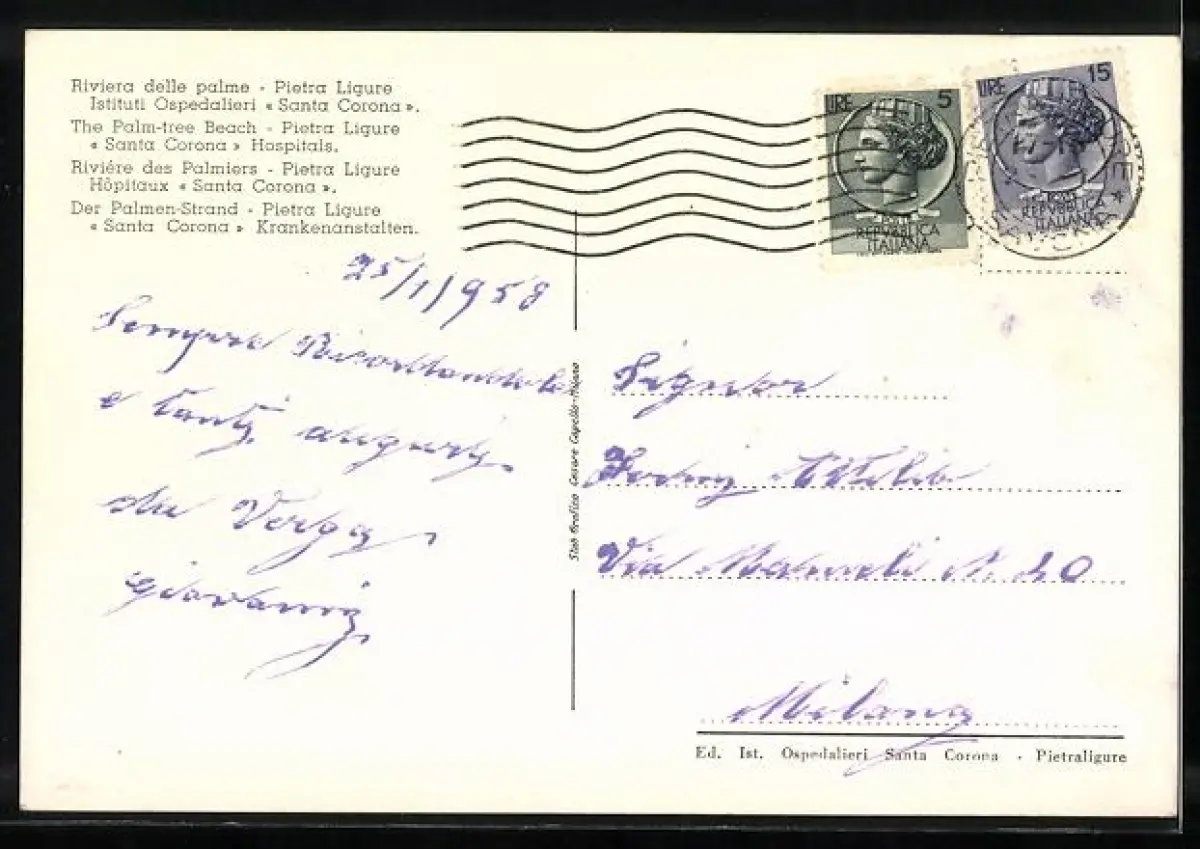 Riviera delle palme - Pietra Ligure
Istituti Ospedalieri « Santa Corona ».
The Palm-tree Beach - Pietra Ligure
« Santa Corona » Hospitals.
Riviére des Palmiers - Pietra Ligure
Hôpitaux « Santa Corona ».
Der Palmen-Strand - Pietra Ligure
« Santa Corona » Krankenanstalten.
LIRE 5
REPVBBLICA
ITALIANA
LIRE 15
REPVBBLICA
ITALIANA
25/1/1958
Sempre
e tanti auguri
da Verga
Giovanni
Stab Grafico Cesare Capello-Milano
Signor
Via Mameli N. 20
Milano
Ed. Ist. Ospedalieri Santa Corona - Pietraligure